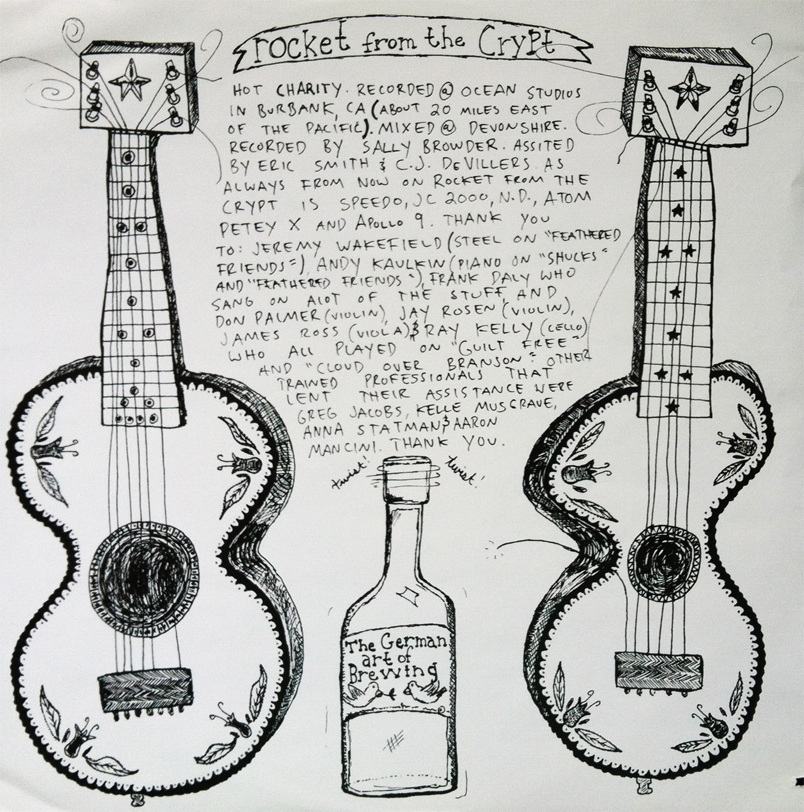 rocket from the Crypt
HOT CHARITY. RECORDED @ OCEAN STUDIOS
IN BURBANK, CA (ABOUT 20 MILES EAST
OF THE PACIFIC). MIXED @ DEVONSHIRE.
RECORDED BY SALLY BROWDER. ASSITED
BY ERIC SMITH & C.J. DEVILLERS. AS
ALWAYS FROM NOW ON ROCKET FROM THE
CRYPT IS SPEEDO, JC 2000, N.D., ATOM
PETEY X AND APOLLO 9. THANK YOU
TO: JEREMY WAKEFIELD (STEEL ON "FEATHERED
FRIENDS"), ANDY KAULKIN (PIANO ON "SHUCKS"
AND "FEATHERED FRIENDS"), FRANK DALY WHO
SANG ON ALOT OF THE STUFF, AND
DON PALMER (VIOLIN), JAY ROSEN (VIOLIN),
JAMES ROSS (VIOLA) & RAY KELLY (CELLO)
WHO ALL PLAYED ON "GUILT FREE"
AND "CLOUD OVER BRANSON". OTHER
TRAINED PROFESSIONALS THAT
LENT THEIR ASSISTANCE WERE
GREG JACOBS, KELLE MUSGRAVE,
ANNA STATMAN & AARON
MANCINI. THANK YOU.
twist! twist!
The German
art of
Brewing